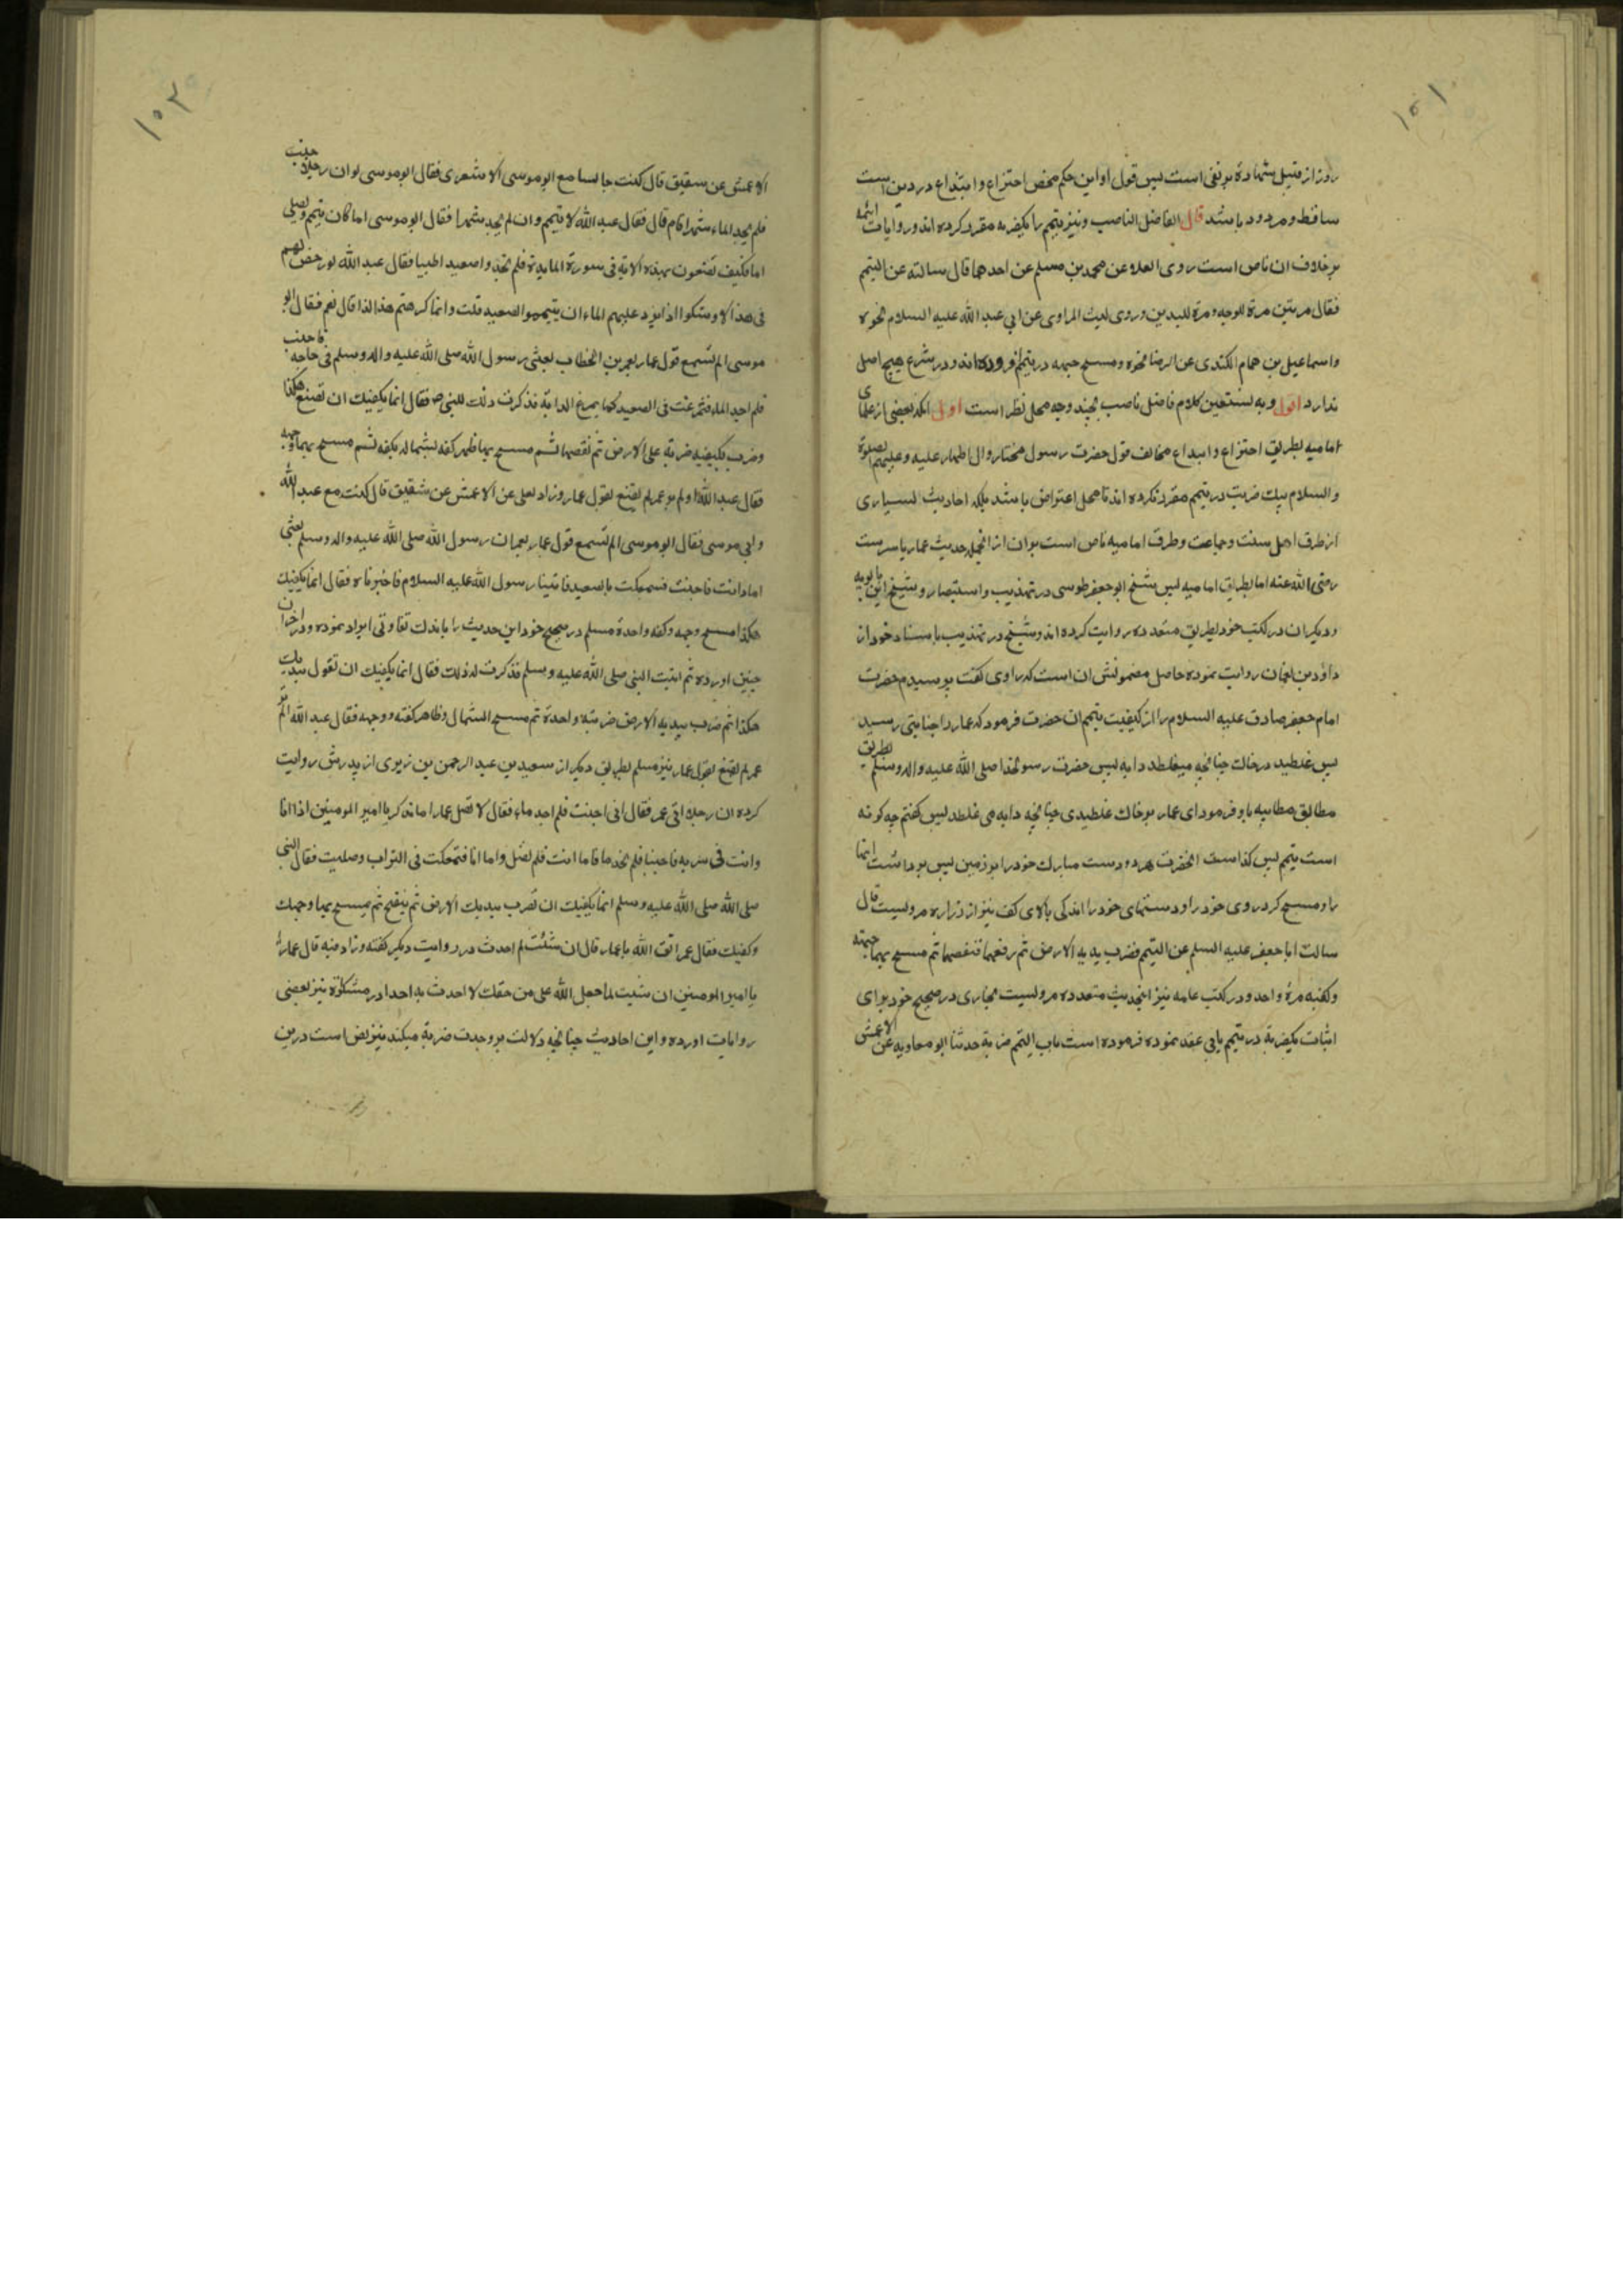 ۱۰۱
روز از قبیل شهادة بر نفی است پس قول او این حکم محض اختراع و ابتداع در دین است
ساقط و مردود باشد قال الفاضل الناصب و نیز تیمم را بکضربه مقرر کرده اند و روایات ائمه
بر خلاف ان ناص است روی العلا عن محمد بن مسلم عن احدهما قال سالته عن التیمم
فقال مرتین مرة للوجه و مرة للیدین و روی لیث المرادی عن ابی عبد الله علیه السلام نحوه
و اسماعیل بن همام الکندی عن الرضا نحوه و مسح جبهه در تیمم افزوده اند و در شرع هیچ اصل
ندارد اقول و به نستعین کلام فاضل ناصب بچند وجه محل نظر است اول انکه بعضی از علمای
امامیه بطریق اختراع و ابداع مخالف قول حضرت رسول مختار و ال اطهار علیه و علیهم الصلوة
والسلام یک ضربت در تیمم مقرر نکرده اند تا محل اعتراض باشد بلکه احادیث بسیاری
از طرف اهل سنت و جماعت و طرق امامیه ناص است بر ان از انجمله حدیث عمار یاسرست
رضی الله عنه اما بطریق امامیه پس شیخ ابو جعفر طوسی در تهذیب و استبصار و شیخ ابن بابویه
و دیکران در کتب خود بطریق متعدده روایت کرده اند و شیخ در تهذیب باسناد خود از
داود بن نعمان روایت نموده حاصل مضمونش ان است که راوی کفت پرسیدم حضرت
امام جعفر صادق علیه السلام را از کیفیت تیمم ان حضرت فرمود که عمار را جنابتی رسید
پس غلطید در خاک چنانچه میغلطد دابه پس حضرت رسولخدا صلی الله علیه و اله وسلم بطریق
مطالبق مطایبه باو فرمود ای عمار بر خاک غلطیدی چنانچه دابه می غلطد پس کفتم چه کونه
است تیمم پس کذاست انحضرت هر دو دست مبارک خود را بر زمین پس برداشت انها
را و مسح کرد روی خود را و دستهای خود را اندکی بالای کف نیز از زراره مرویست قال
سالت ابا جعفر علیه السلم عن التیمم فضرب یدیه الارض ثم رفعهما فنفضهما ثم مسح بهما جبهته
و کفیه مرة واحد و در کتب عامه نیز انحدیث متعدده مرویست بخاری در صحیح خود برای
اثبات یکضربة در تیمم بابی عقد نموده فرموده است باب التیمم ضربة حدثنا ابو معاویه عن الاعمش
۱۰۲
الاعمش عن سقیق قال کنت جالسا مع ابو موسی الاشعری فقال ابو موسی لو ان رجلا جنب
فلم یجد الماء شهرا قام قال فقال عبد الله لا تیمم و ان لم یجد شهرا فقال ابو موسی اما کان تیمم و یصلی
اما فکیف تصنعون بهذه الایة فی سورة المایدة فلم تجدوا صعید اطیبا فقال عبد الله لو رخص لهم
فی هذا لاوشکوا اذا برد علیهم الماء ان یتیمموا الصعید قلت و انما کرهتم هذا لذا قال نعم فقال ابو
موسی الم تسمع قول عمار لعمر بن الخطاب بعثی رسول الله صلی الله علیه و اله وسلم فی حاجه فاجنبت
فلم اجد الماء فتمرغت فی الصعید کما یمرغ الدابة فذکرت ذلک للنبی ص فقال انما یکفیک ان تصنع هکذا
و ضرب بکفیه ضربة علی الارض ثم نفضها ثم مسح بها ظهر کفه بشماله بکفه ثم مسح بهما وجهه
فقال عبد الله اولم یر عمر لم یقنع بقول عمار و زاد یعلی عن الاعمش عن شقیق قال کنت مع عبد الله
و ابی موسی فقال ابو موسی الم تسمع قول عمار لعمر ان رسول الله صلی الله علیه و اله وسلم بعثی
انا و انت فاجنبت فتمعکت بالصعید فاتینا رسول الله علیه السلام فاخبرناه فقال انما یکفیک
هکذا مسح وجهه و کفه واحدة مسلم در صحیح خود این حدیث را باندک تفاوتی ایراد نموده و در اخر ان
چنین اورده ثم اتیت النبی صلی الله علیه و سلم فذکرت له ذلک فقال انما یکفیک ان تقول بیدیک
هکذا ثم ضرب بیدیه الارض ضربة واحدة ثم مسح الشمال و ظاهر کفته و وجهه فقال عبد الله الم تر
عمر لم یقنع بقول عمار نیز مسلم بطریق دیکر از سعید بن عبد الرحمن بن زیری از پدرش روایت
کرده ان رجلا اتی عمر فقال انی اجنبت فلم اجد ماء فقال لا تصل عمارا ما تذکر یا امیر المومنین اذا انا
و انت فی سریه فاجنبنا فلم نجد ما فاما انت فلم تصل و اما انا فتمعکت فی التراب و صلیت فقال النبی
صلی الله صلی الله علیه و سلم انما یکفیک ان تضرب بیدیک الارض ثم ینفخ ثم یمسح بهما وجهک
و کفیک فقال عمر اتق الله یا عمار قال ان شئت لم احدث در روایت دیکر کفته و زاد فیه قال عمار
یا امیر المومنین ان شئت لما جعل الله علی من حقک لا احدث به احدا در مشکوة نیز بعضی
روایات اورده و این احادیث چنانچه دلالت بر وحدت ضربة میکند نیز نص است درین